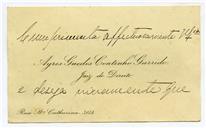 Cumprimenta affectuosamente V. Ex.ª
Ayres Guedes Coutinho Garrido
Juiz de Direito
e deseja vivamente que
Rua St.ª Catharina